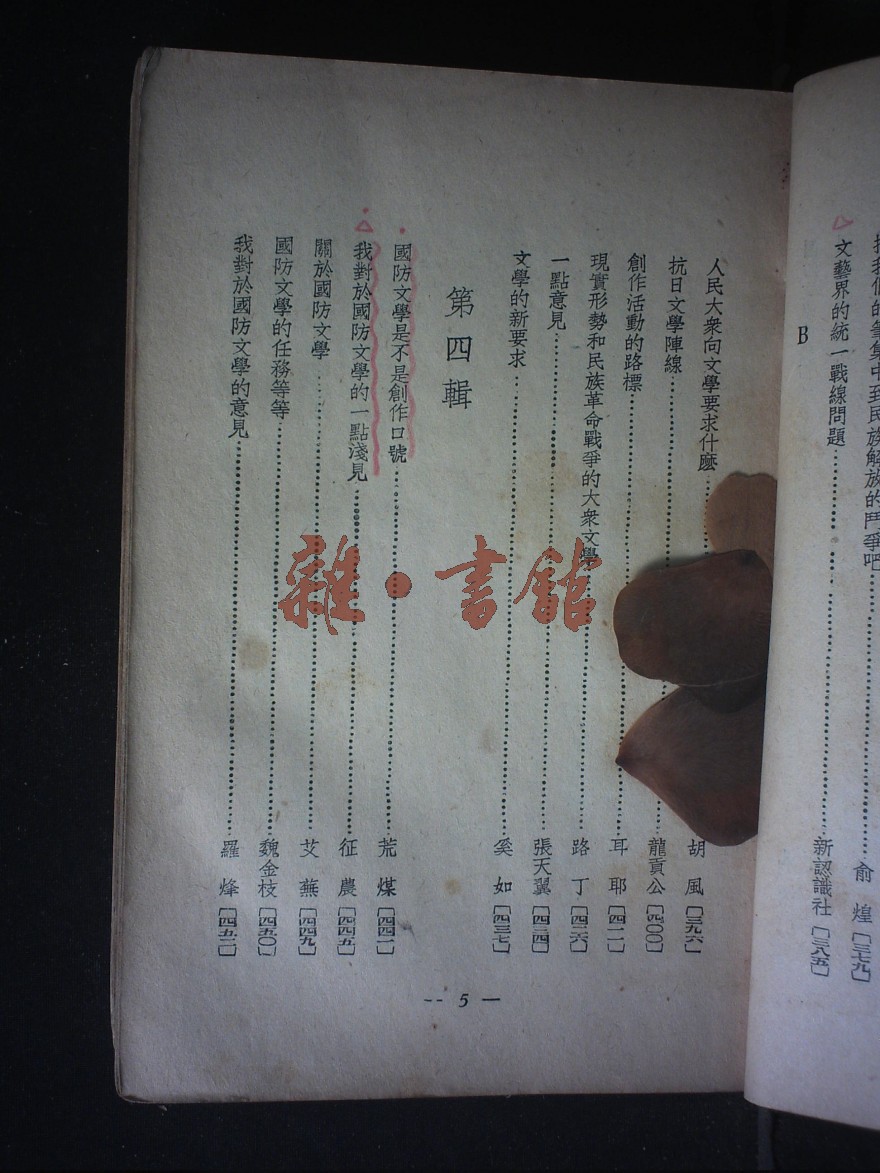 我們的筆集中到民族解放的鬥爭吧……俞煌〔三七九〕
文藝界的統一戰線問題……新認識社〔三八五〕
B
人民大衆向文學要求什麽……胡風〔三九六〕
抗日文學陣線……龍貢公〔四〇〇〕
創作活動的路標……耳耶〔四一一〕
現實形勢和民族革命戰爭的大衆文學……路丁〔四二六〕
一點意見……張天翼〔四三四〕
文學的新要求……奚如〔四三七〕
第四輯
國防文學是不是創作口號……荒煤〔四四一〕
我對於國防文學的一點淺見……征農〔四四五〕
關於國防文學……艾蕪〔四四九〕
國防文學的任務等等……魏金枝〔四五〇〕
我對於國防文學的意見……羅烽〔四五二〕
-- 5 —
雜·書館